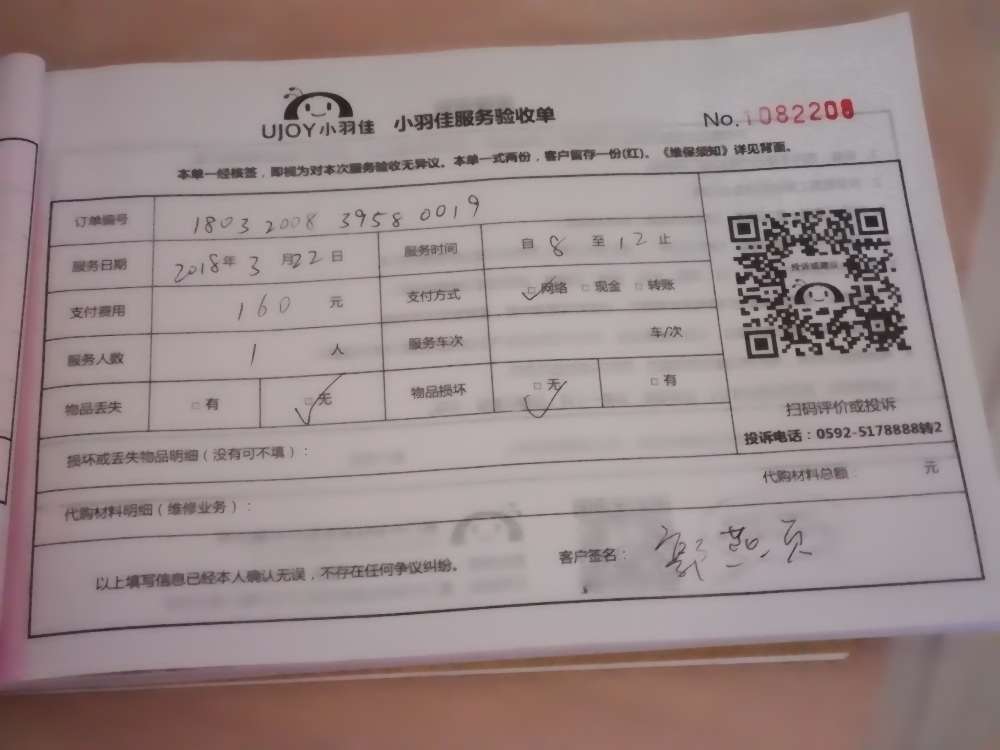 UJOY小羽佳 小羽佳服务验收单 No.1082208
本单一经核签，即视为对本次服务验收无异议。本单一式两份，客户留存一份(红)。《维保须知》详见背面。
订单编号 18032008 3958 0019
服务日期 2018年 3月22日 服务时间 自 8 至 12 止
支付费用 160 元 支付方式 □网络 □现金 □转账
服务人数 1 人 服务车次 车/次
物品丢失 □有 □无 物品损坏 □无 □有
投诉或建议
扫码评价或投诉
投诉电话：0592-5178888转2
损坏或丢失物品明细（没有可不填）：
代购材料明细（维修业务）： 代购材料总额： 元
以上填写信息已经本人确认无误，不存在任何争议纠纷。 客户签名：